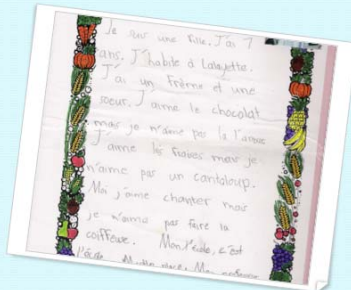 Je suis une fille. J'ai 7
ans. J'habite à Lafayette.
J'ai un frème et une
soeur. J'aime le chocolat
mais je n'aime pas la
J'aime les mais je
n'aime pas un cantaloup.
Moi j'aime chanter mais
je n'aime pas faire la
coiffeuse. Mon l'école, c'est
l'école